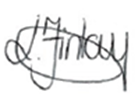 L. Finlay